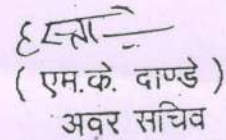 हस्ता—
( एम.के. दाण्डे )
अवर सचिव